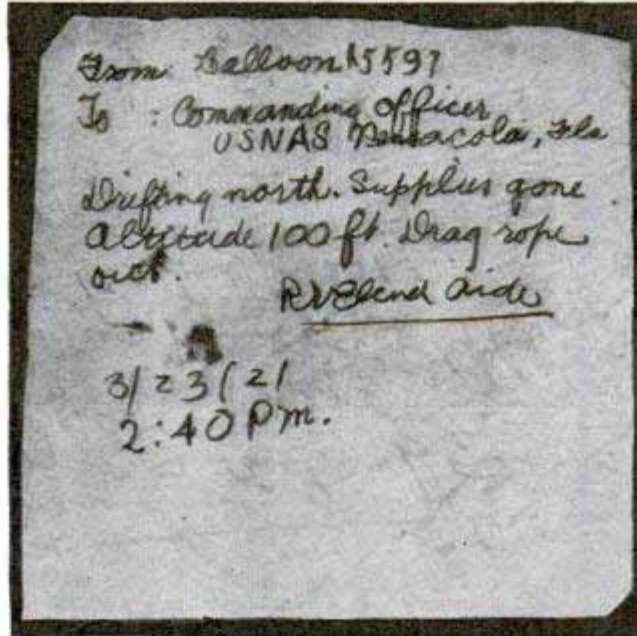 From: Balloon A5597
To : Commanding Officer
USNAS Pensacola, Fla
Drifting north. Supplies gone
Altitude 100 ft. Drag rope
out.
aide
3/23/21
2:40 Pm.